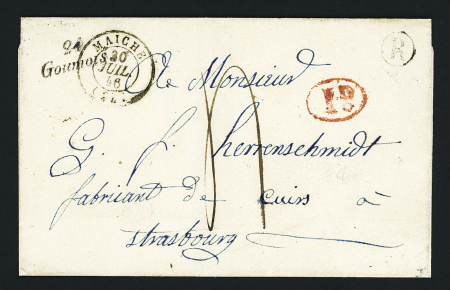 24
Goumois
MAICHE
30
JUIL
46
(24)
R
1D
A Monsieur
G. f. herrenschmidt
fabricant de cuirs à
strasbourg